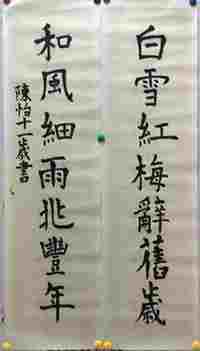 白雪紅梅辭舊歲
和風細雨兆豐年
陳怡十一歲書